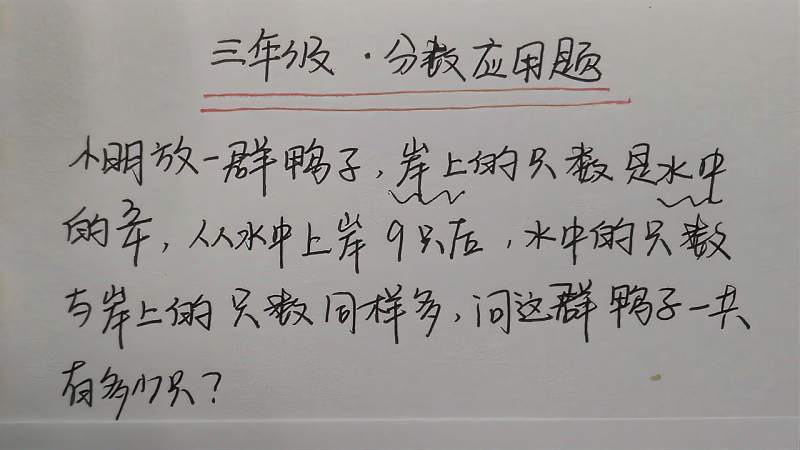 三年级·分数应用题
小明放一群鸭子,岸上的只数是水中
的3/4,从水中上岸9只后,水中的只数
与岸上的只数同样多,问这群鸭子一共
有多少只?